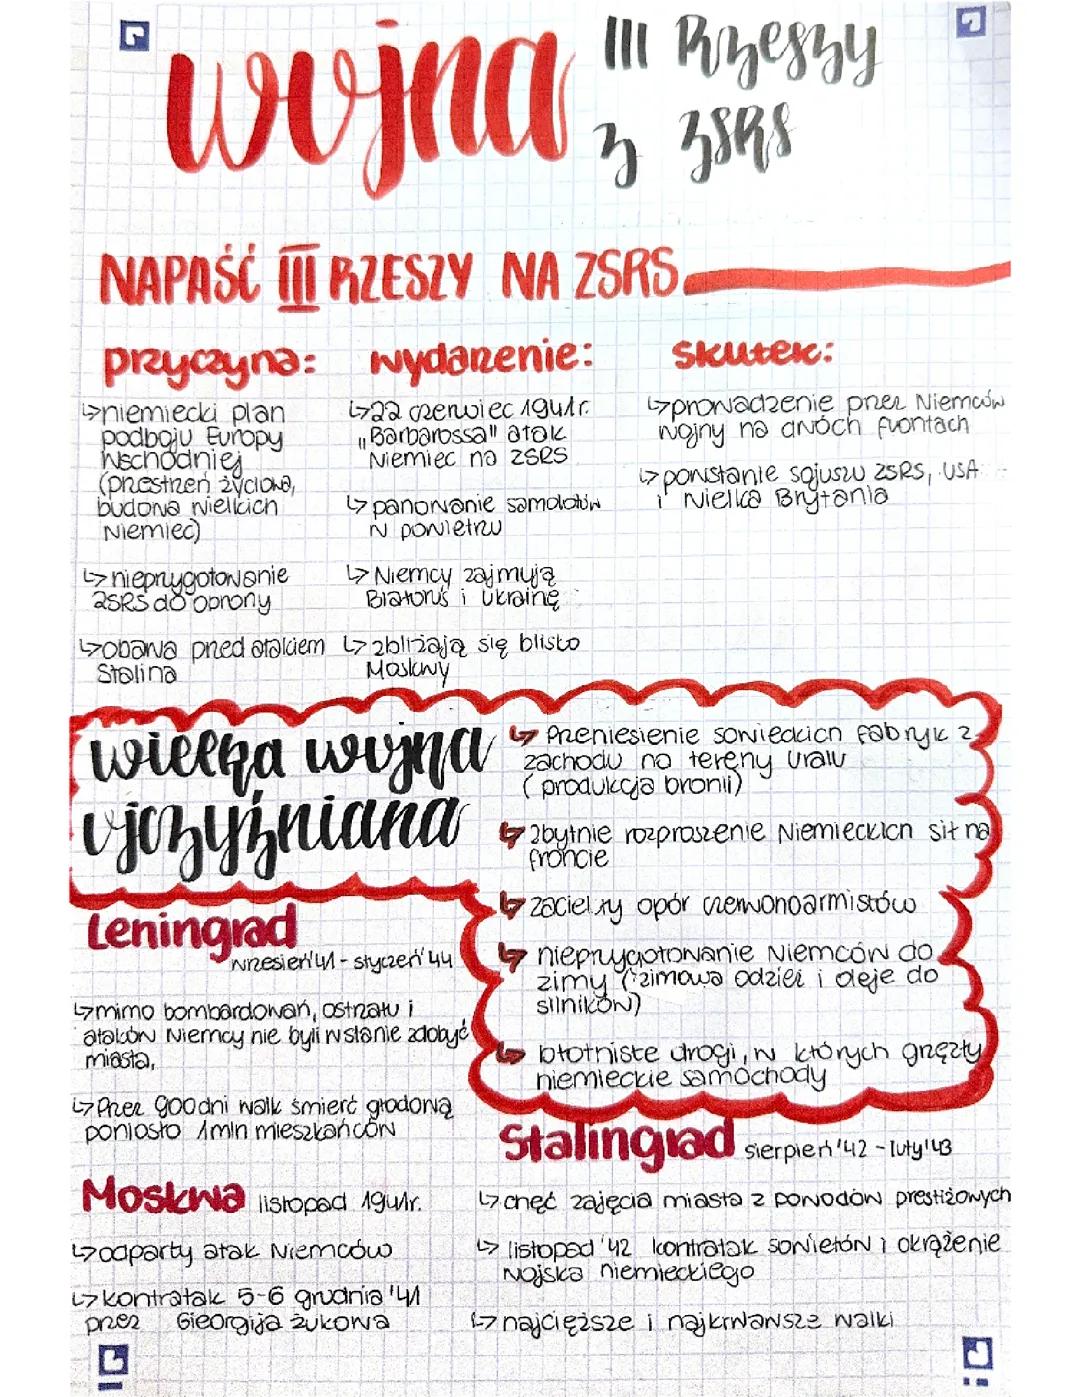 wojna III Rzeszy
z ZSRS
NAPAŚĆ III RZESZY NA ZSRS
przyczyna:
↳niemiecki plan
podboju Europy
wschodniej
(przestrzeń życiowa,
budowa wielkich
Niemiec)
↳nieprzygotowanie
ZSRS do obrony
↳obawa przed atakiem
Stalina
wydarzenie:
↳22 czerwiec 1941r.
"Barbarossa" atak
Niemiec na ZSRS
↳panowanie samolotów
w powietrzu
↳Niemcy zajmują
Białoruś i Ukrainę
↳zbliżają się blisko
Moskwy
skutek:
↳prowadzenie przez Niemców
wojny na dwóch frontach
↳powstanie sojuszu ZSRS, USA
i Wielka Brytania
wielka wojna
ojczyźniana
↳ Przeniesienie sowieckich fabryk z
zachodu na tereny Uralu
(produkcja bronii)
↳zbytnie rozproszenie Niemieckich sił na
froncie
↳zacielszy opór czerwonoarmistów
↳ nieprzygotowanie Niemców do
zimy (zimowa odzież i oleje do
silników)
↳ błotniste drogi, w których grzęzły
niemieckie samochody
Leningrad
wrzesień'41 - styczeń'44
↳mimo bombardowań, ostrzału i
ataków Niemcy nie byli w stanie zdobyć
miasta,
↳Przez 900 dni walk śmierć głodową
poniosło 1mln mieszkańców
Moskwa listopad 1941r.
↳odparty atak Niemców
↳kontratak 5-6 grudnia '41
przez Gieorgija Żukowa
Stalingrad sierpień '42 - luty'43
↳chęć zajęcia miasta z powodów prestiżowych
↳ listopad '42 kontratak sowietów i okrążenie
wojska niemieckiego
↳najcięższe i najkrwawsze walki